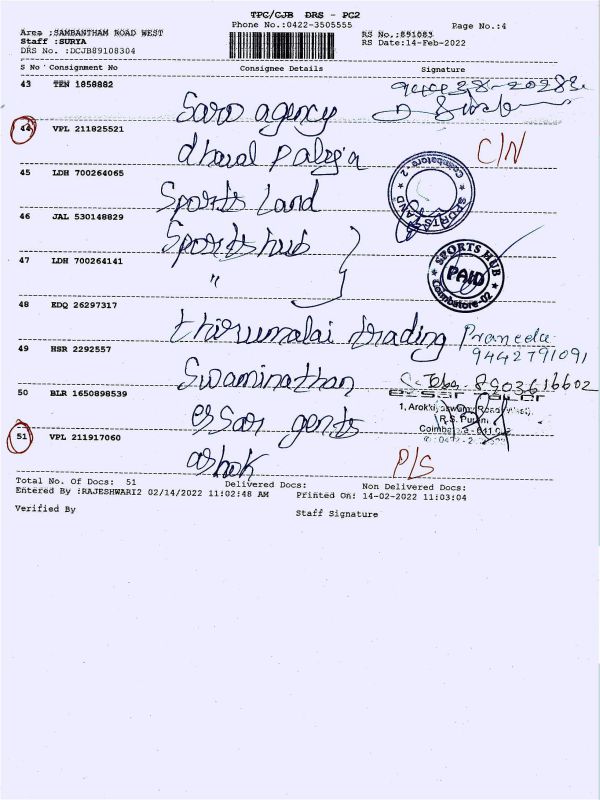 TPC/CJB DRS - PC2
Phone No.:0422-3505555
Page No.:4
Area :SAMBANTHAM ROAD WEST
Staff :SURYA
DRS No. :DCJB89108304
RS No.:891083
RS Date:14-Feb-2022
S No Consignment No Consignee Details Signature
43 TEN 1858882
Saro agency
44 VPL 211825521
dhaval
C/N
45 LDH 700264065
Sports Land
COIMBATORE - 2 SPORTS LAND
46 JAL 530148829
Sports hub
47 LDH 700264141
"
SPORTS HUB
PAID
Coimbatore-02
48 EDQ 26297317
thirumalai trading
9442791091
49 HSR 2292557
Swaminathan
8903616602
50 BLR 1650898539
essar gents
51 VPL 211917060
ashok
P/S
Total No. Of Docs: 51 Delivered Docs: Non Delivered Docs:
Entered By :RAJESHWARI2 02/14/2022 11:02:48 AM Printed On: 14-02-2022 11:03:04
Verified By
Staff Signature